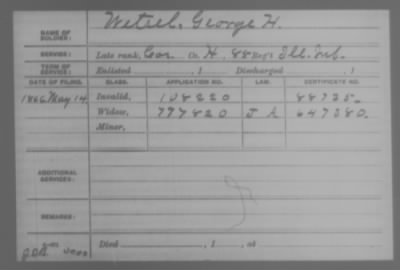 NAME OF SOLDIER: Wetsel, George H.
SERVICE: Late rank, Cor. Co. H, 88 Reg't Ill. Inf.
TERM OF SERVICE: Enlisted , 1 Discharged , 1
DATE OF FILING. CLASS. APPLICATION NO. LAW. CERTIFICATE NO.
1866 May 14 Invalid, 108220 88735.
Widow, 797820 J A 647380.
Minor,
ADDITIONAL SERVICES:
REMARKS:
Died , 1 , at